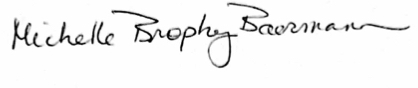 Michelle Brophy Baermann